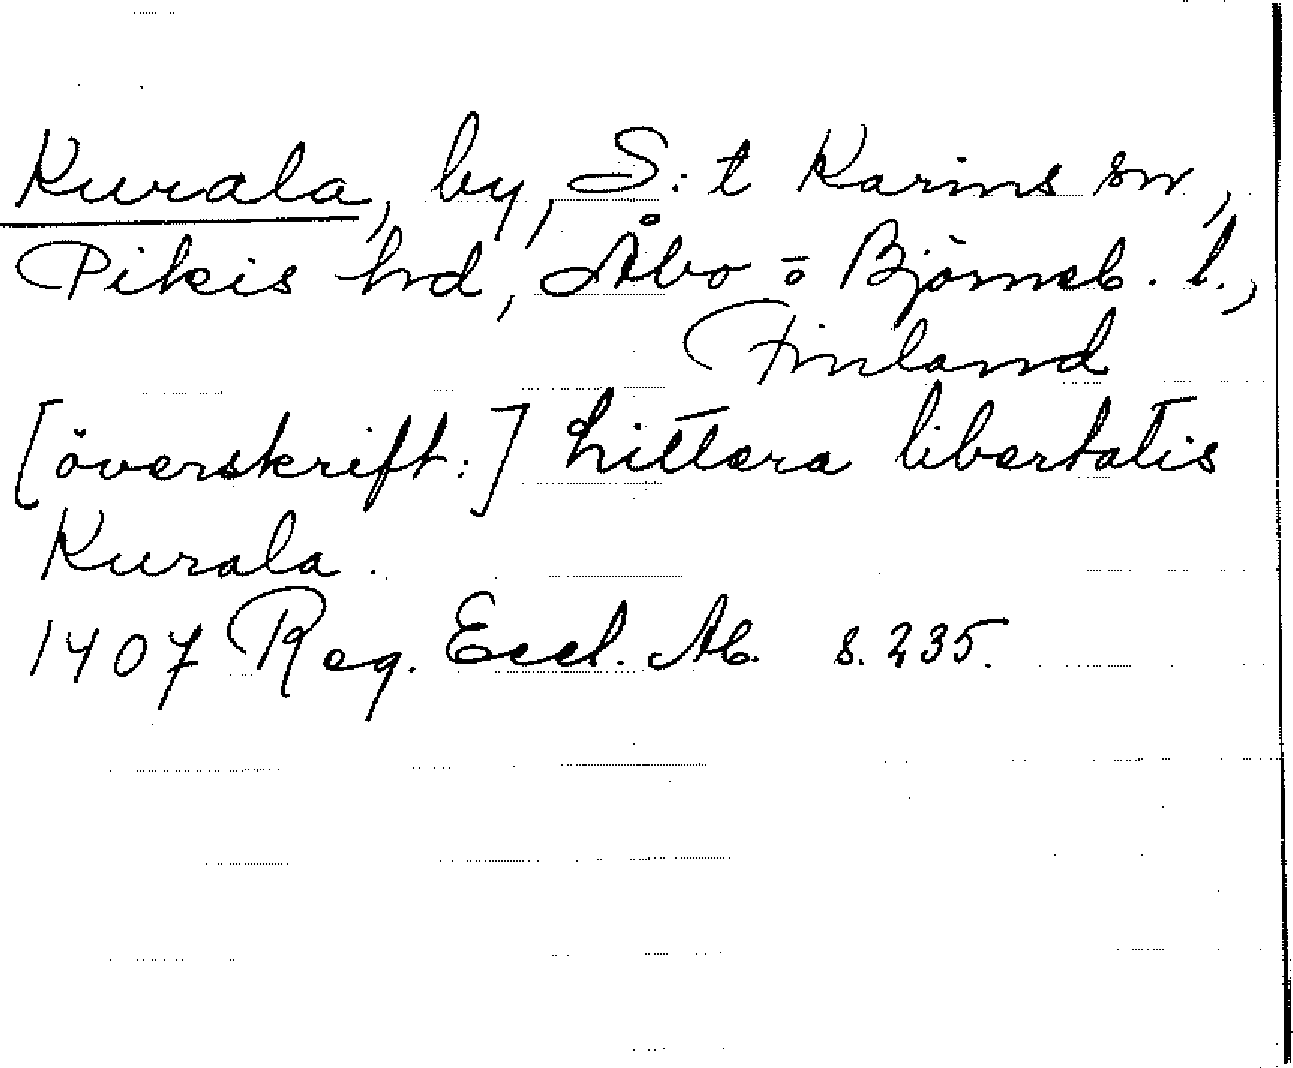 Kurala, by, S:t Karins sn,
Pikis hd, Åbo o Björneb. l.,
Finland
[överskrift:] Littera libertatis
Kurala.
1407 Reg. Eccl. Ab. s. 235.